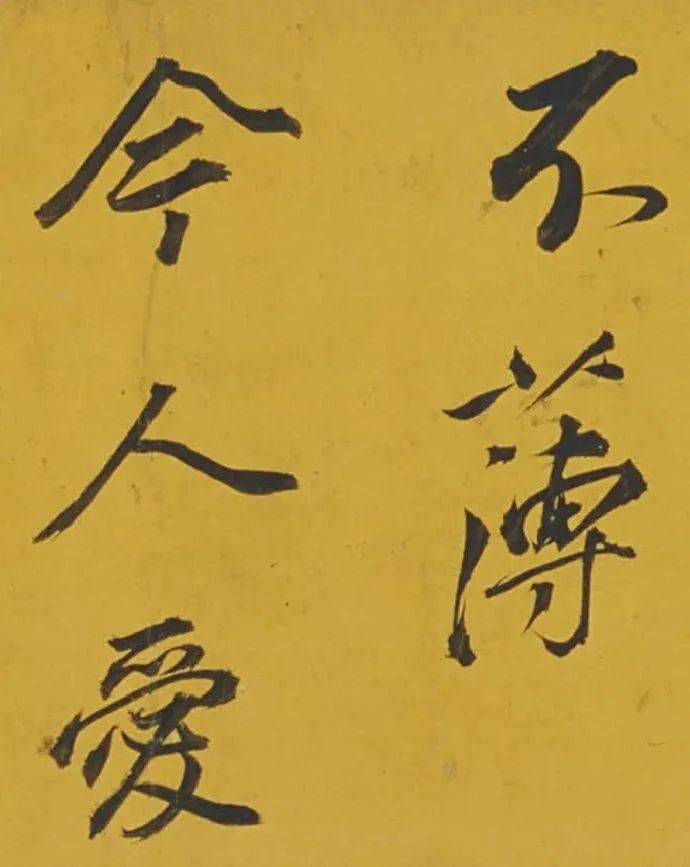 不薄
今人愛